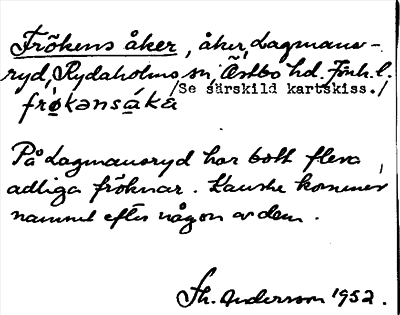 Frökens åker, åker, Lagmans-
ryd, Rydaholms sn, Östbo hd. Jönk. l.
/Se särskild kartskiss./
frø̀kənsákər
På Lagmansryd har bott flera
adliga fröknar. Kanske kommer
namnet efter någon av dem.
Th. Andersson 1952.